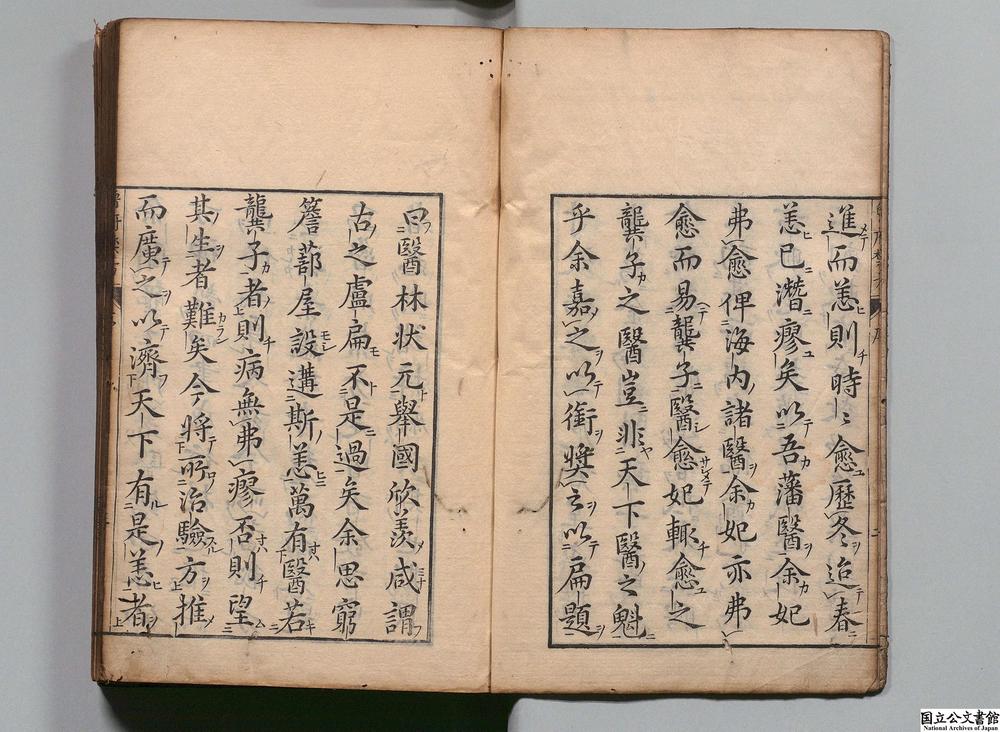 進而恙則時〻愈歷冬迨春
恙已潛瘳矣以吾藩醫余妃
弗愈俾海內諸醫余妃亦弗
愈而易龔子醫愈妃輙愈之
龔子之醫豈非天下醫之魁
乎余嘉之以銜奬之以扁題
曰醫林狀元舉國欣羨咸謂
古之盧扁不是過矣余思窮
簷蔀屋設遘斯恙萬有醫若
龔子者則病無弗瘳否則望
其生者難矣今將所治驗方推
而廣之以濟天下有是恙者
国立公文書館
National Archives of Japan